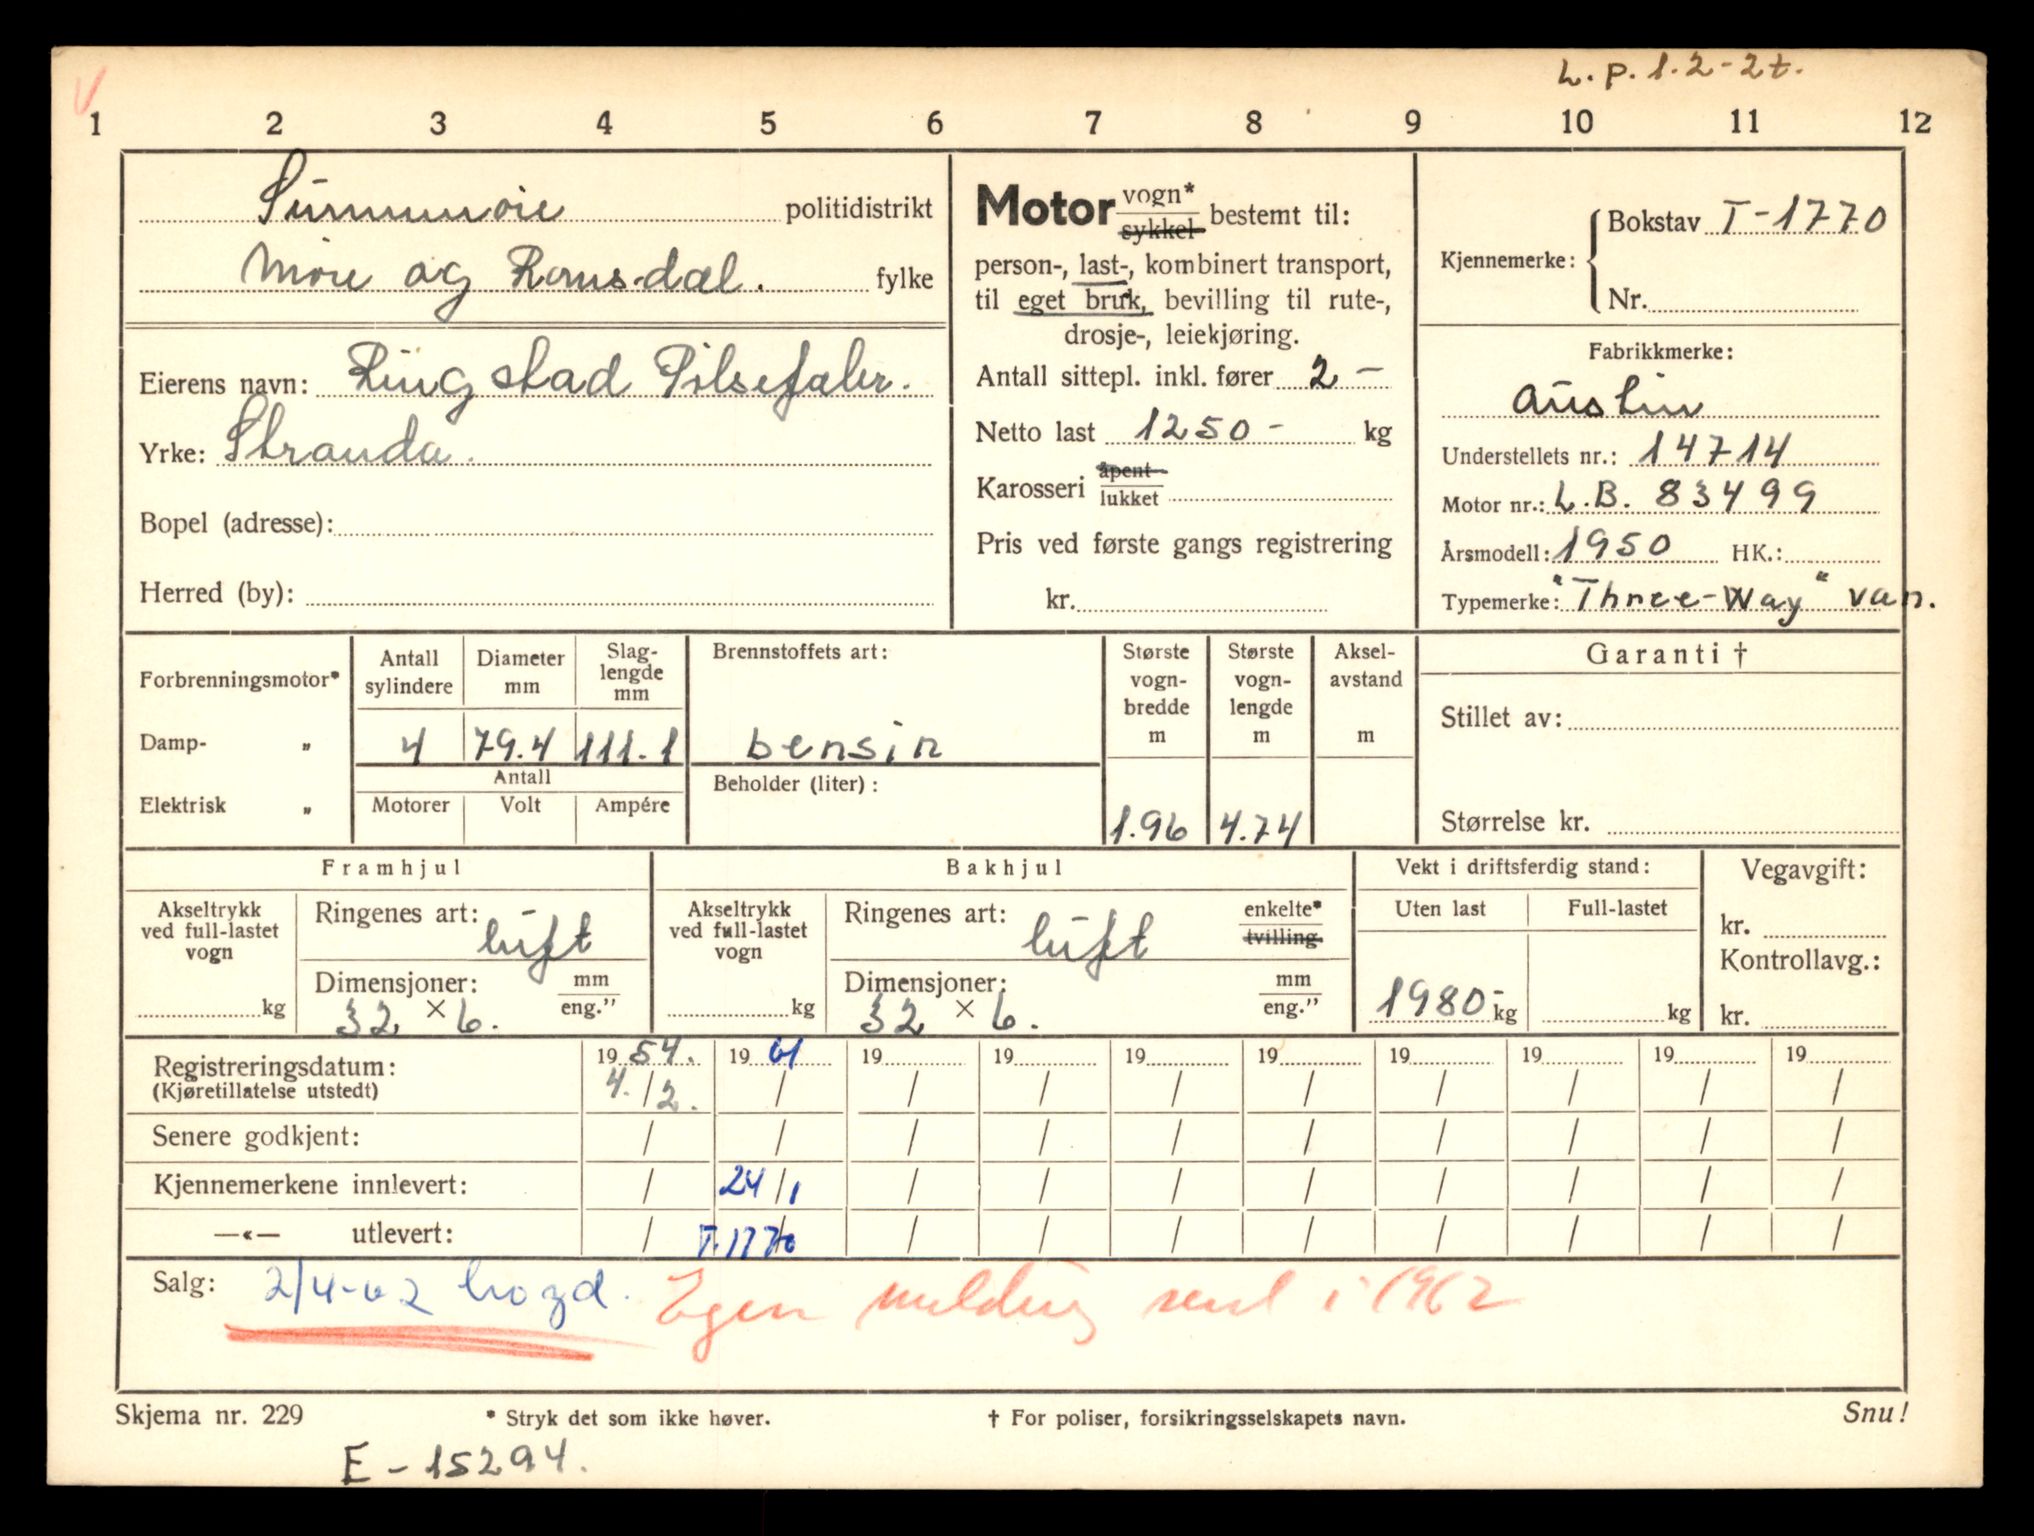 L. P. 1.2-2t.
1 2 3 4 5 6 7 8 9 10 11 12
Sunnmøre politidistrikt
Møre og Romsdal. fylke
Eierens navn: Ringstad Pølsefabr.
Yrke: Stranda.
Bopel (adresse):
Herred (by):
Motor vogn* / sykkel bestemt til:
person-, last-, kombinert transport,
til eget bruk, bevilling til rute-,
drosje-, leiekjøring.
Antall sittepl. inkl. fører 2 -
Netto last 1250- kg
Karosseri åpent / lukket
Pris ved første gangs registrering
kr.
Kjennemerke: Bokstav T-1770
Nr.
Fabrikkmerke:
Austin
Understellets nr.: 14714
Motor nr.: L.B. 83499
Årsmodell: 1950 HK.:
Typemerke: "Three-Way" van.
Forbrenningsmotor*
Damp- „
Elektrisk „
Antall sylindere Diameter mm Slag-lengde mm
4 79.4 111.1
Antall
Motorer Volt Ampére
Brennstoffets art:
bensin
Beholder (liter):
Største vogn-bredde m
1.96
Største vogn-lengde m
4.74
Aksel-avstand m
Garanti †
Stillet av:
Størrelse kr.
Framhjul
Akseltrykk ved full-lastet vogn
kg
Ringenes art: luft
Dimensjoner: mm / eng."
32 × 6.
Bakhjul
Akseltrykk ved full-lastet vogn
kg
Ringenes art: luft enkelte* / tvilling.
Dimensjoner: mm / eng."
32 × 6.
Vekt i driftsferdig stand:
Uten last Full-lastet
1980- kg kg
Vegavgift:
kr.
Kontrollavg.:
kr.
Registreringsdatum: 19 54. 19 61 19 19 19 19 19 19 19 19
(Kjøretillatelse utstedt) 4. / 2. / / / / / / / / /
Senere godkjent: / / / / / / / / / /
Kjennemerkene innlevert: / 24 / 1 / / / / / / / /
—«— utlevert: / T.1770 / / / / / / / /
Salg: 2/4-62 Egen melding senl i 1962
Skjema nr. 229 * Stryk det som ikke høver. † For poliser, forsikringsselskapets navn. Snu!
E - 15294.